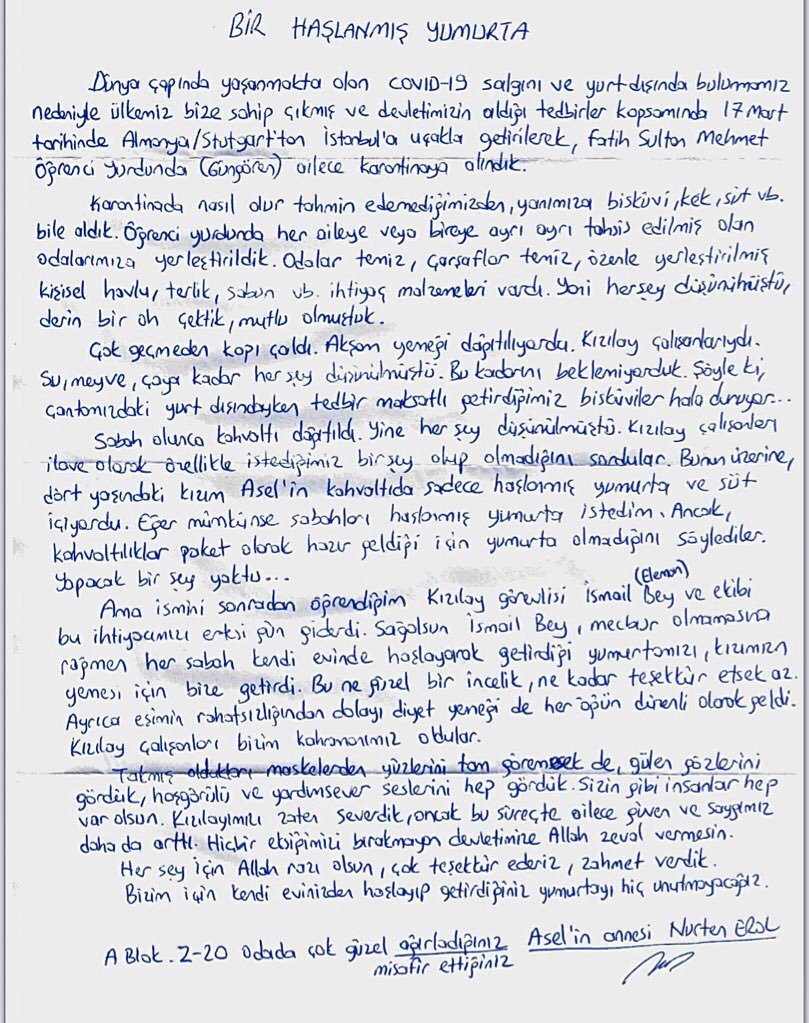 BİR HAŞLANMIŞ YUMURTA
Dünya çapında yaşanmakta olan COVID-19 salgını ve yurt dışında bulunmamız
nedeniyle ülkemiz bize sahip çıkmış ve devletimizin aldığı tedbirler kapsamında 17 Mart
tarihinde Almanya/Stutgart'tan İstanbul'a uçakla getirilerek, Fatih Sultan Mehmet
Öğrenci Yurdunda (Güngören) ailece karantinaya alındık.
Karantinada nasıl olur tahmin edemediğimizden, yanımıza bisküvi, kek, süt vb.
bile aldık. Öğrenci yurdunda her aileye veya bireye ayrı ayrı tahsis edilmiş olan
odalarımıza yerleştirildik. Odalar temiz, çarşaflar temiz, özenle yerleştirilmiş
kişisel havlu, terlik, sabun vb. ihtiyaç malzemeleri vardı. Yani herşey düşünülmüştü,
derin bir oh çektik, mutlu olmuştuk.
Çok geçmeden kapı çaldı. Akşam yemeği dağıtılıyordu. Kızılay çalışanlarıydı.
Su, meyve, çaya kadar her şey düşünülmüştü. Bu kadarını beklemiyorduk. Şöyle ki,
çantamızdaki yurt dışındayken tedbir maksatlı getirdiğimiz bisküviler hala duruyor...
Sabah olunca kahvaltı dağıtıldı. Yine her şey düşünülmüştü. Kızılay çalışanları
ilave olarak özellikle istediğimiz bir şey olup olmadığını sordular. Bunun üzerine,
dört yaşındaki kızım Asel'in kahvaltıda sadece haşlanmış yumurta ve süt
içiyordu. Eğer mümkünse sabahları haşlanmış yumurta istedim. Ancak,
kahvaltılıklar paket olarak hazır geldiği için yumurta olmadığını söylediler.
Yapacak bir şey yoktu...
Ama ismini sonradan öğrendiğim Kızılay görevlisi İsmail (Eleman) Bey ve ekibi
bu ihtiyacımızı ertesi gün giderdi. Sağolsun İsmail Bey, mecbur olmamasına
rağmen her sabah kendi evinde haşlayarak getirdiği yumurtamızı, kızımızın
yemesi için bize getirdi. Bu ne güzel bir incelik, ne kadar teşekkür etsek az.
Ayrıca eşimin rahatsızlığından dolayı diyet yemeği de her öğün düzenli olarak geldi.
Kızılay çalışanları bizim kahramanımız oldular.
Takmış oldukları maskelerden yüzlerini tam göremesek de, gülen gözlerini
gördük, hoşgörülü ve yardımsever seslerini hep gördük. Sizin gibi insanlar hep
var olsun. Kızılayımızı zaten severdik, ancak bu süreçte ailece güven ve saygımız
daha da arttı. Hiçbir eksiğimizi bırakmayan devletimize Allah zeval vermesin.
Her şey için Allah razı olsun, çok teşekkür ederiz, zahmet verdik.
Bizim için kendi evinizden haşlayıp getirdiğiniz yumurtayı hiç unutmayacağız.
A Blok. Z-20 odada çok güzel ağırladığınız Asel'in annesi Nurten EROL
misafir ettiğiniz